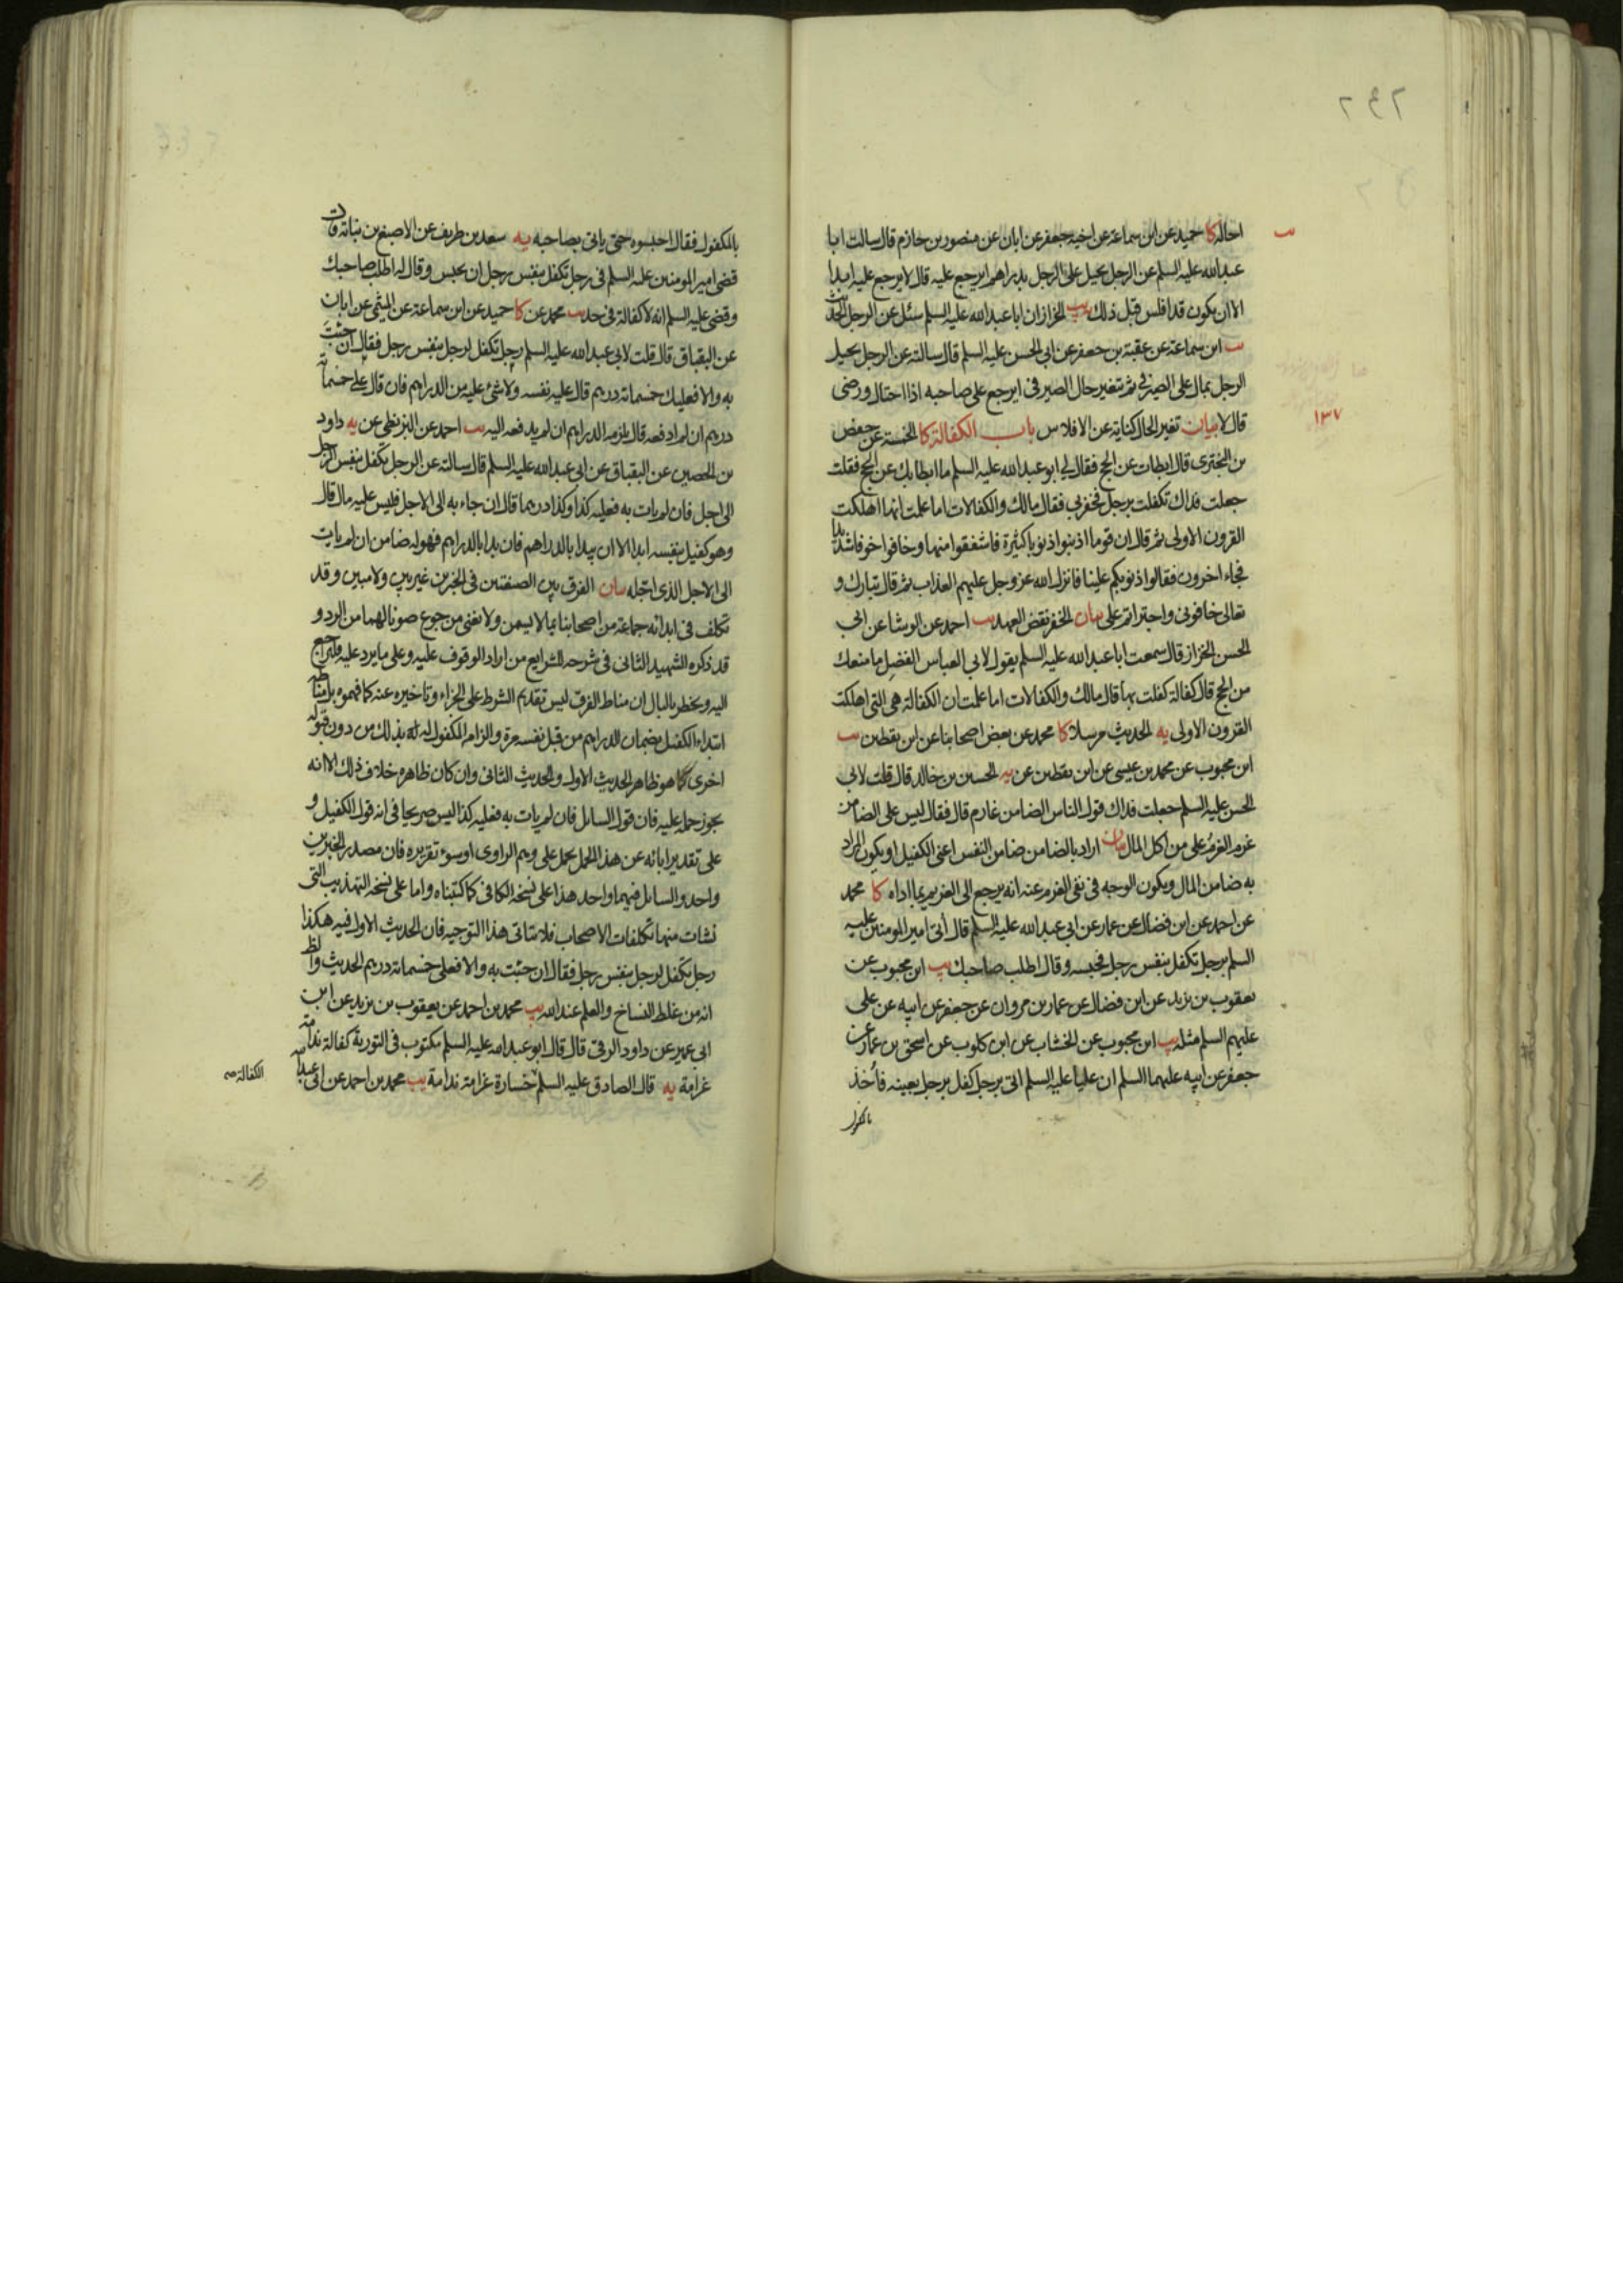 احاله كا حميد عن ابن سماعة عن اخيه جعفر عن ابان عن منصور بن حازم قال سالت ابا
عبدالله عليه السلم عن الرجل يحيل على الرجل بدراهم ايرجع عليه قال لا يرجع عليه ابدا
الا ان يكون قد افلس قبل ذلك يب الخزاز ان ابا عبدالله عليه السلم سئل عن الرجل الحديث
يب ابن سماعة عن عقبة بن جعفر عن ابى الحسن عليه السلم قال سالته عن الرجل يحيل
الرجل بمال على الصيرفى ثم تغير حال الصيرفى ايرجع على صاحبه اذا احتال ورضى
قال لا بيان تغير الحال كناية عن الافلاس باب الكفالة كا الخمسة عن حفص
١٣٧
بن البخترى قال ابطات عن الحج فقال لى ابو عبدالله عليه السلم ما ابطا بك عن الحج فقلت
جعلت فداك تكفلت برجل فخفر بى فقال مالك والكفالات اما علمت انها اهلكت
القرون الاولى ثم قال ان قوما اذنبوا ذنوبا كثيرة فاشفقوا منها وخافوا خوفا شديدا
فجاء اخرون فقالوا ذنوبكم علينا فانزل الله عز وجل عليهم العذاب ثم قال تبارك و
تعالى خافونى واجتراتم على بيان الخفر نقض العهد يب احمد عن الوشا عن ابى
الحسن الخزاز قال سمعت ابا عبدالله عليه السلم يقول لابى العباس الفضل ما منعك
من الحج قال كفالة كفلت بها قال مالك والكفالات اما علمت ان الكفالة هى التى اهلكت
القرون الاولى يه الحديث مرسلا كا محمد عن بعض اصحابنا عن ابن يقطين يب
ابن محبوب عن محمد بن عيسى عن ابن يقطين عن يه الحسين بن خالد قال قلت لابى
الحسن عليه السلم جعلت فداك قول الناس الضامن غارم قال فقال ليس على الضامن
غرم الغرم على من اكل المال بيان اراد بالضامن ضامن النفس اعنى الكفيل او يكون المراد
به ضامن المال ويكون الوجه فى نفى الغرم عنه انه يرجع الى الغريم بما اداه كا محمد
عن احمد عن ابن فضال عن عمار عن ابى عبد الله عليه السلم قال أتى امير المومنين عليه
السلم برجل تكفل بنفس رجل فحبسه وقال اطلب صاحبك يب ابن محبوب عن
يعقوب بن يزيد عن ابن فضال عن عمار بن مروان عن جعفر عن ابيه عن على
عليهم السلم مثله يب ابن محبوب عن الخشاب عن ابن كلوب عن اسحق بن عمار عن
جعفر عن ابيه عليهما السلم ان عليا عليه السلم اتى برجل كفل برجل بعينه فأخذ
بالمكفول فقال احبسوه حتى ياتى بصاحبه يه سعد بن طريف عن الاصبغ بن نباتة قال
قضى امير المومنين عليه السلم فى رجل تكفل بنفس رجل ان يحبس وقال له اطلب صاحبك
وقضى عليه السلم انه لا كفالة فى حد يب محمد عن كا حميد عن ابن سماعة عن الميثمى عن ابان
عن البقباق قال قلت لابى عبدالله عليه السلم رجل تكفل لرجل بنفس رجل فقال ان جئت
به والا فعليك خمسمائة درهم قال عليه نفسه ولا شئ عليه من الدراهم فان قال على خمسمائة
درهم ان لم ادفعه قال يلزمه الدراهم ان لم يدفعه اليه يب احمد عن البزنطى عن يه داود
بن الحصين عن البقباق عن ابى عبدالله عليه السلم قال سالته عن الرجل تكفل بنفس الرجل
الى اجل فان لم يات به فعليه كذا وكذا درهما قال ان جاء به الى الاجل فليس عليه مال قال
وهو كفيل بنفسه ابدا الا ان يبدا بالدراهم فان بدا بالدراهم فهو له ضامن ان لم يات
الى الاجل الذى اجله بيان الفرق بين الصيغتين فى الخبرين غير بين ولا مبين وقد
تكلف فى ابدائه جماعة من اصحابنا بما لا يسمن ولا يغنى من جوع صونا لهما من الرد و
قد ذكره الشهيد الثانى فى شرحه للشرايع من اراد الوقوف عليه وعلى ما يرد عليه فليراجع
اليه ويخطر بالبال ان مناط الفرق ليس تقديم الشرط على الجزاء وتاخيره عنه كما فهموه بل مناطه
ابتداء الكفيل بضمان الدراهم من قبل نفسه مرة والزام المكفول له له بذلك من دون قبوله
اخرى كما هو ظاهر الحديث الاول والحديث الثانى وان كان ظاهره خلاف ذلك الا انه
يجوز حمله عليه فان قول السايل فان لم يات به فعليه كذا ليس صريحا فى انه قول الكفيل و
على تقدير ابائه عن هذا الحمل يحمل على وهم الراوى او سوء تقريره فان مصدر الخبرين
واحد والسايل فيهما واحد هذا على نسخة الكافى كما كتبناه واما على نسخة التهذيب التى
نشات منها تكلفات الاصحاب فلا يتاتى هذا التوجيه فان الحديث الاول فيه هكذا
رجل تكفل لرجل بنفس رجل فقال ان جئت به والا فعلى خمسمائة درهم الحديث والظ
انه من غلط النساخ والعلم عند الله يب محمد بن احمد عن يعقوب بن يزيد عن ابن
ابى عمير عن داود الرقى قال قال ابو عبدالله عليه السلم مكتوب فى التورية كفالة ندامة
غرامة يه قال الصادق عليه السلم خسارة غرامة ندامة يب محمد بن احمد عن ابى عبدالله
الكفالة صح